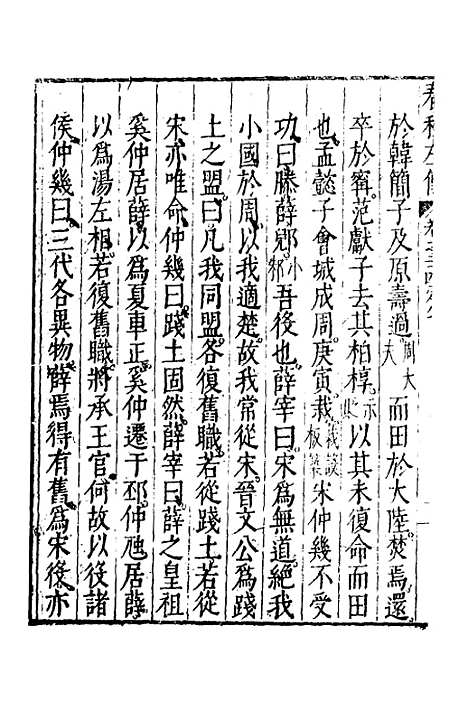 春秋左傳
於韓簡子及原壽過周大夫而田於大陸焚焉還
卒於甯范獻子去其柏椁亦以其未復命而田
也孟懿子會城成周庚寅栽栽設板築宋仲幾不受
功曰滕薛郳小邾吾役也薛宰曰宋爲無道絕我
小國於周以我適楚故我常從宋晉文公爲踐
土之盟曰凡我同盟各復舊職若從踐土若從
宋亦唯命仲幾曰踐土固然薛宰曰薛之皇祖
奚仲居薛以爲夏車正奚仲遷于邳仲虺居薛
以爲湯左相若復舊職將承王官何故以役諸
侯仲幾曰三代各異物薛焉得有舊爲宋役亦